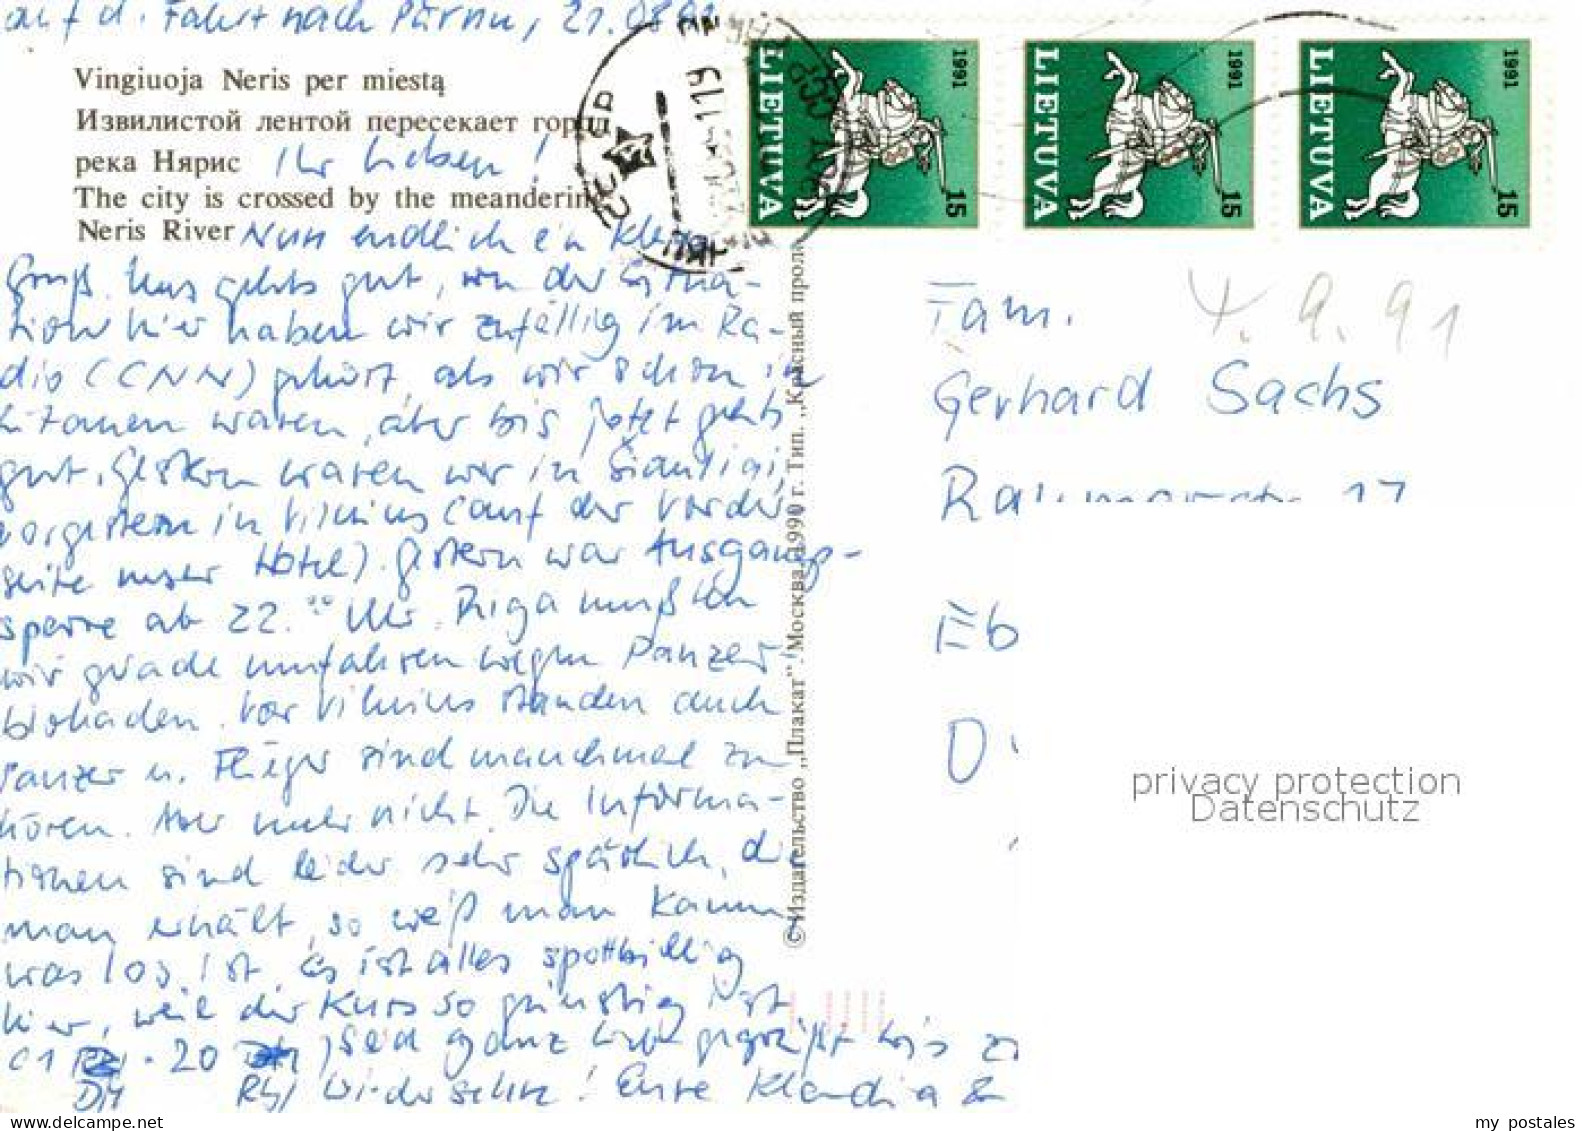 auf d. Fahrt nach Pärnu, 21.08.91
Vingiuoja Neris per miestą
Извилистой лентой пересекает город
река Нярис
Ihr Lieben!
The city is crossed by the meandering
Neris River
Nun endlich ein kleiner
Gruß. Uns gehts gut, von der Situa-
tion hier haben wir zufällig im Ra-
dio (CNN) gehört, als wir schon in
Litauen waren, aber bis jetzt gehts
gut. Gestern waren wir in Šiauliai,
vorgestern in Vilnius (auf der Vorder-
seite unser Hotel). Gestern war Ausgangs-
sperre ab 22.00 Uhr. Riga mußten
wir grade umfahren wegen Panzer-
blokaden. Vor Vilnius standen auch
Panzer u. Flieger sind manchmal zu
hören. Aber mehr nicht. Die Informa-
tionen sind leider sehr spärlich, die
man erhält, so weiß man kaum
was los ist. Es ist alles spottbillig
hier, weil der Kurs so günstig ist
(1 DM - 20 Rbl) Seid ganz lieb gegrüßt bis z
Wiedersehen! Eure Klaudia &
© Издательство „Плакат". Москва. 1990 г. Тип. „Красный прол
1991
LIETUVA
15
1991
LIETUVA
15
1991
LIETUVA
15
Fam.
4.9.91
Gerhard Sachs
17
Eb
D
privacy protection
Datenschutz
my postales